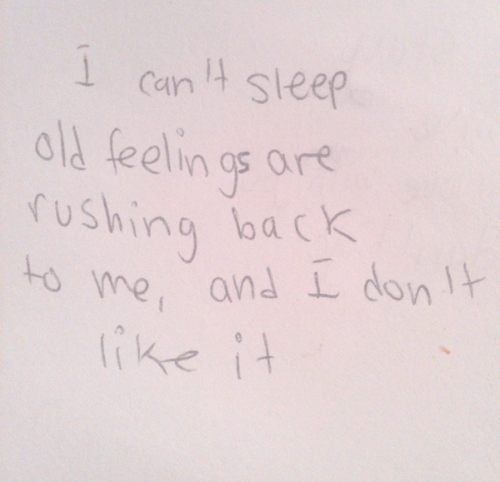 I can't sleep
old feelings are
rushing back
to me, and I don't
like it